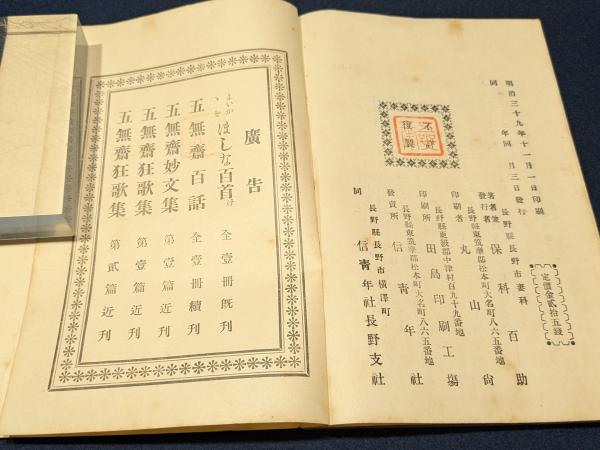 明治三十九年十一月一日印刷
同 年同 月三日發行
定價金貳拾五錢
不許複製
長野縣長野市妻科
著者兼
發行者
保科百助
長野縣東筑摩郡松本町大名町八六五番地
印刷者
丸山尙
長野縣更級郡中津村百九十九番地
印刷所
田島印刷工場
長野縣東筑摩郡松本町大名町八六五番地
發賣所
信靑年社
長野縣長野市橫澤町
同
信靑年社長野支社
廣告
ほしな百首 全壹冊既刊
五無齋百話 全壹冊續刊
五無齋妙文集 第壹篇近刊
五無齋狂歌集 第壹篇近刊
五無齋狂歌集 第貳篇近刊